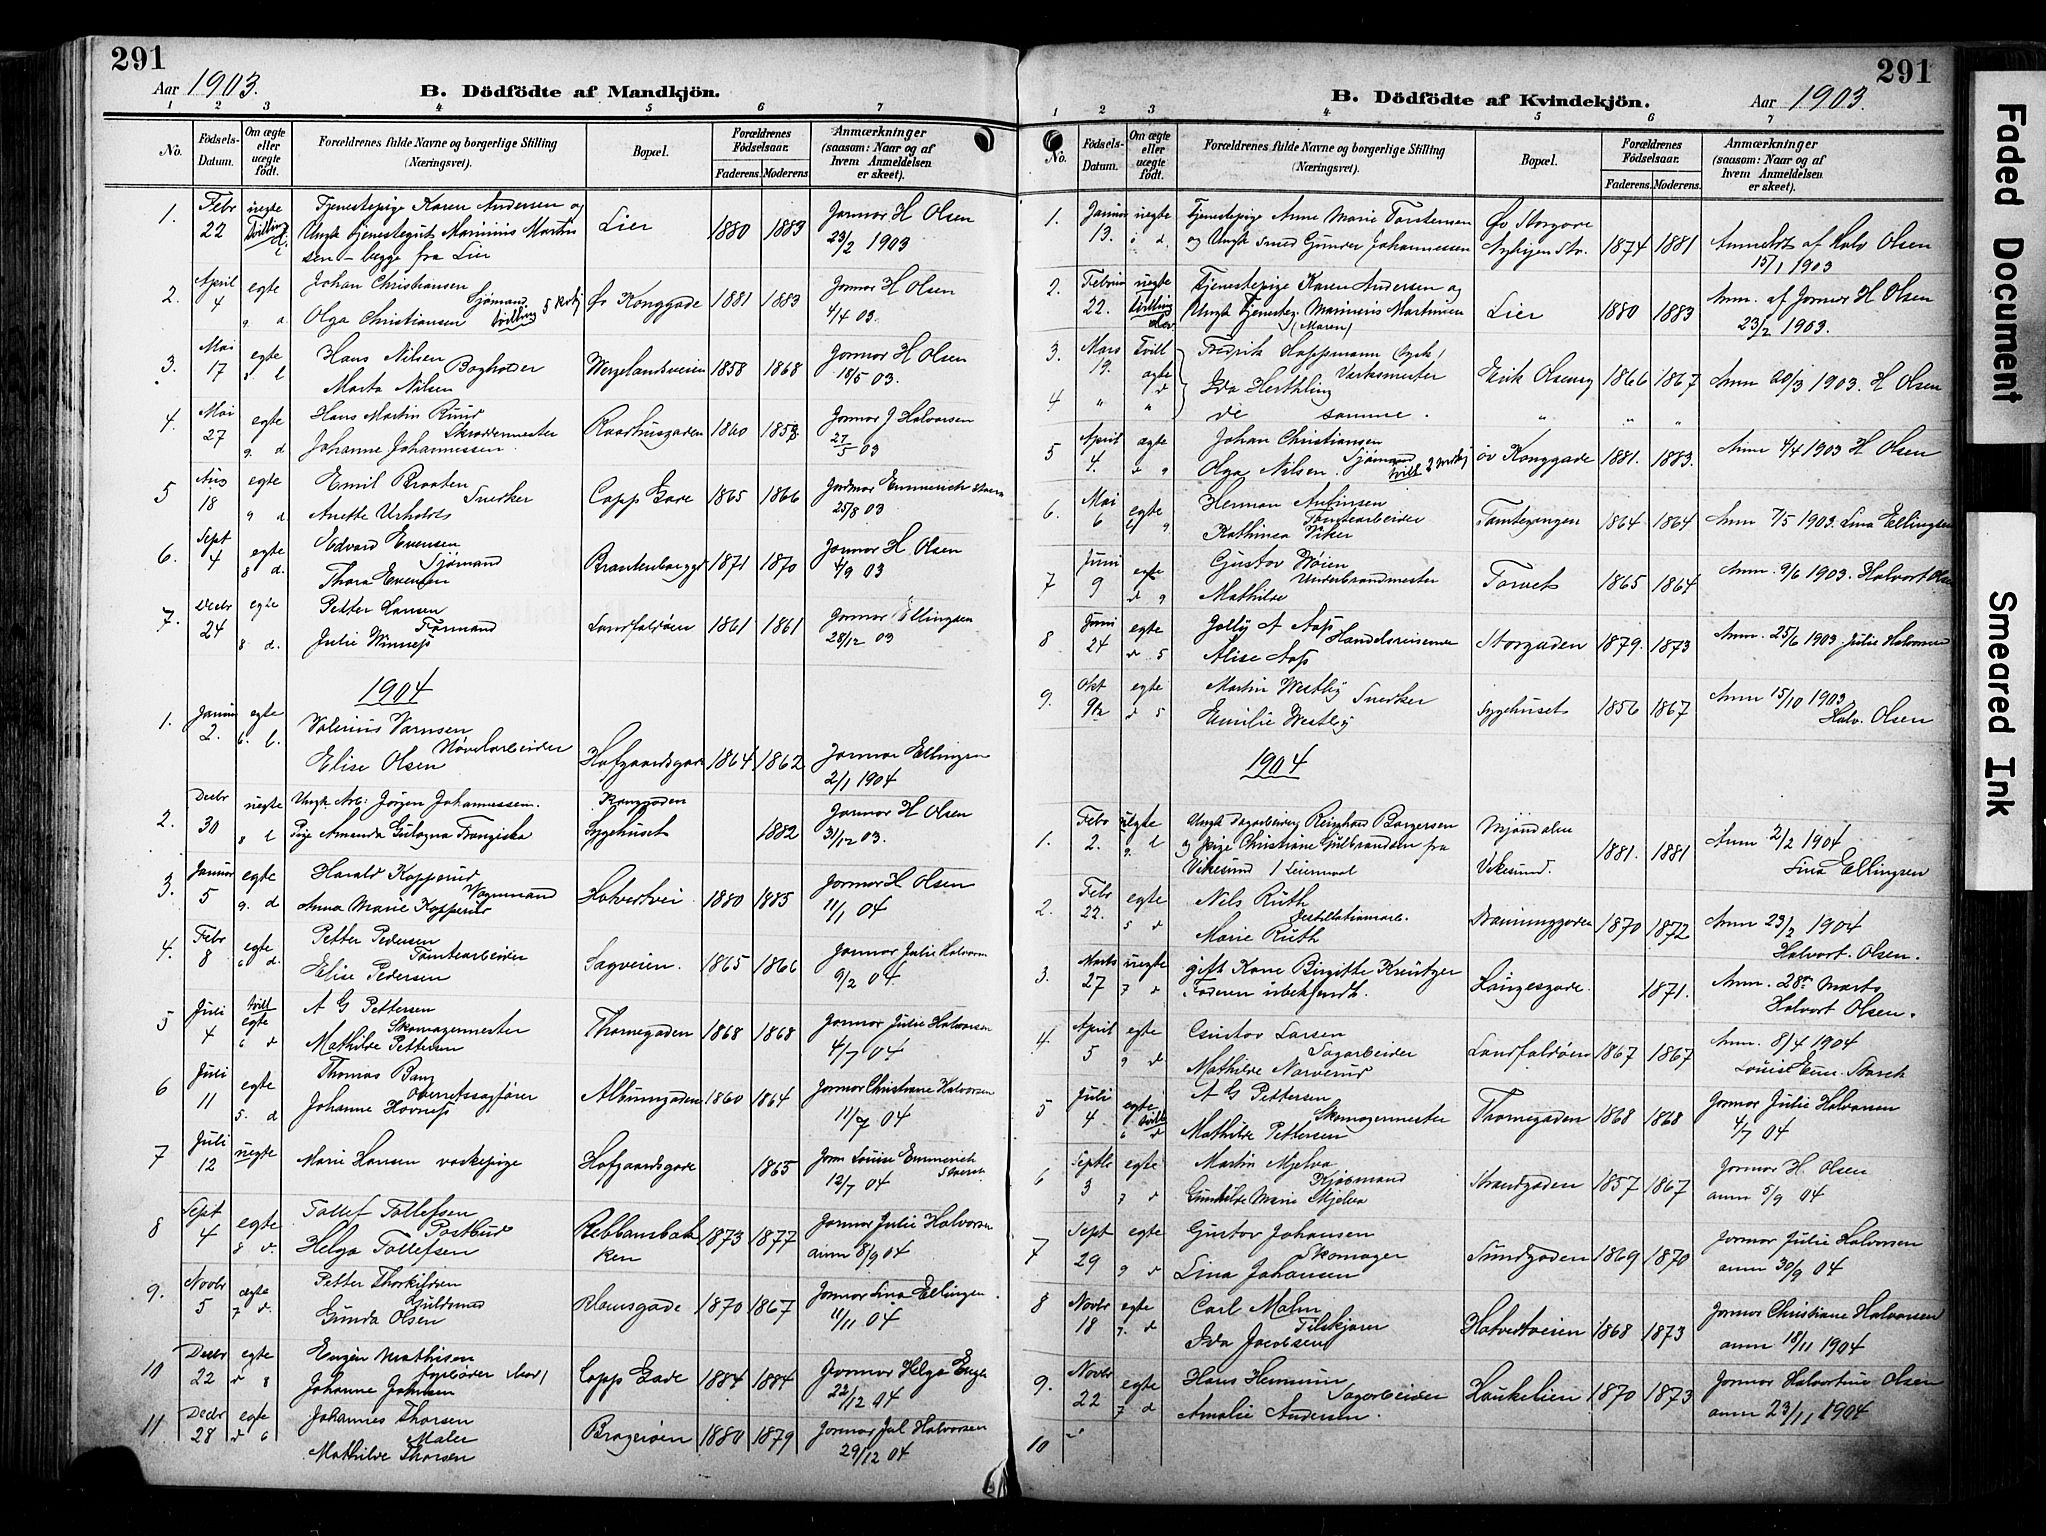 291
Aar 1903.
B. Dödfödte af Mandkjön.
1 2 3 4 5 6 7
No. Födsels-Datum. Om ægte eller uægte födt. Forældrenes fulde Navne og borgerlige Stilling (Næringsvei). Bopæl. Forældrenes Födselsaar. Faderens. Moderens. Anmærkninger (saasom: Naar og af hvem Anmeldelsen er skeet).
1. Febr uegte Tjenestepige Karen Andersen og
22 Tvilling Ungk Tjenestegut Marinius Martin Lier 1880 1883 Jormor H Olsen
sen – begge fra Lier 23/2 1903
2. April egte Johan Christiansen Sjømand Øv Konggade 1881 1883 Jormor H Olsen
4 Olga Christiansen tvilling 4/4 03.
3. Mai egte Hans Nilsen Bogholder Wergelandsveien 1858 1868 Jormor H Olsen
17 Marta Nilsen 18/5 03.
4. Mai egte Hans Martin Ruud Skræddermester Raadhusgaden 1860 Jormor J Halvorsen
27 9. d Johanne Johannessen. 27/5 03
5 Aug egte Emil Braaten Snerker Capp Gade 1865 1866 Jordmor Emmerich
18 9 d. Anette 25/8 03
6. Sept egte Edvard Evensen Sjømand 1871 1870 Jormor H Olsen
4 8 d. Thora Evensen 4/9 03
7. Decbr egte Petter Larsen Formand Landfaldøen 1861 1861 Jormor Ellingsen
24 8 d. Julie 28/12 03
1904
1. Januar egte Valerius
2. Elise Olsen Høvelarbeider Hofgaardsgade 1864 1862 Jormor Ellingsen
2/1 1904
2. Decbr uegte Ungk. Arb: Jørgen Johannessen. Konggaden Jormor H Olsen
30 8 l Pige Amanda Franziska Sygehuset 1882 31/12 03.
3. Januar egte Harald Kopperud Vognmand Hotvetvei 1880 1885 Jormor H Olsen
5 9. d Anna Marie Kopperud 11/1 04
4. Febr egte Petter Pedersen Tomtearbeider Sagveien. 1865 1866 Jormor Julie Halvorsen
8 6 d. Elise Pedersen 9/2 04.
5 Juli tvill egte A G Pettersen Skomagermester Thornegaden 1868 1868 Jormor Julie Halvorsen
4 6 d Mathilde Pettersen 4/7 04
6 Juli egte Thomas Bang Overretssagfører Albumgaden 1860 1864 Jormor Christiane Halvorsen
11 5. d Johanne 11/7 04
7 Juli uegte Marie Hansen vaskepige Hofgaardsgade 1865 Jorm Louise Emmerich
12 12/7 04
8 Sept egte Tollef Tollefsen Postbud Rebbansbak 1873 1877 Jormor Julie Halvorsen
4 8 d. Helga Tollefsen ken anm 8/9 04
9. Novbr ægte Petter Thorkildsen Guldsmed 1870 1867 Jormor Lina Ellingsen
5 7 d. Gunda Olsen 11/11 04
10 Decbr egte Eugen Mathisen Capp Gade 1884 1884 Jormor Helga
22 d 8 Johanne 22/12 04
11 Decbr egte Johannes Thorsen Maler Bragerøen 1880 1879 Jormor Jul Halvorsen
28 d 6 Mathilde Thorsen 29/12 04
291
B. Dödfödte af Kvindekjön.
Aar 1903.
1 2 3 4 5 6 7
No. Födsels-Datum. Om ægte eller uægte födt. Forældrenes fulde Navne og borgerlige Stilling (Næringsvei). Bopæl. Forældrenes Födselsaar. Faderens. Moderens. Anmærkninger (saasom: Naar og af hvem Anmeldelsen er skeet).
1. Januar uegte Tjenestepige Anne Marie Torstensen Øv Storgade
13. og Ungk Smed Gunder Johannessen 1874 1881 Anmeldt af Halv Olsen
15/1 1903
2. Februar uegte Tjenestepige Karen Andersen og Anm. af Jormor H Olsen
22. tvilling Ungk Tjenesteg. Marinius Martinsen Lier 1880 1883 23/2 1903.
(Maren)
3. Mars Tvill Fredrik Hoppmann (tysk)
19. ægte Ida Herthling Værksmester Eirik 1866 1867 Anm 20/3 1903. H Olsen
4 " " de samme. " " "
5 April ægte Johan Christiansen Sjømand øv Konggade 1881. 1883. Anm 4/4 1903 H Olsen
4. Olga Nilsen.
6. Mai egte Herman Tomtearbeider Tomtegangen 1864 1864 Anm 7/5 1903. Lina Ellingsen
6 Kathinca Viker
7 Juni egte Gustav Høien Underbrandmester Torvet 1865 1864 Anm. 9/6 1903. Halvort Olsen
9 d 9 Mathilde
8 Juni egte Handelsreisende Storgaden 1879. 1873 Anm. 25/6 1903. Julie Halvorsen
24 d 5 Alise
9. Okt egte Martin Westby Snerker Sygehuset 1856 1867 Anm 15/10 1903
d 5 Emilie Westby Halv. Olsen
1904
1. Febr uegte Ungk Sagarbeider Reinhard Borgersen Mjøndalen Anm 2/2 1904
2. 9. l og pige Christiane Gulbrandsen fra 1881. 1881 Lina Ellingsen
Vikesund / Vikesund.
2. Febr egte Nils Ruth Destillationsarb. 1870 1872 Anm 23/2 1904
22. 5 d Marie Ruth Halvort. Olsen.
3. Marts uegte gift Kone Birgitte Kreutzer 1871. Anm. 28de Marts
27 7 d Faderen ubekjendt. Halvort Olsen.
4. April egte Gustav Larsen Sagarbeider Landfaldøen 1867 1867 Anm. 8/4 1904
5 9 d Mathilde Narverud Louise Em. Storch
5 Juli egte tvill A G Pettersen Skomagermester Thornegaden 1868 1868 Jormor Julie Halvorsen
4 6 d Mathilde Pettersen 4/7 04
6 Septbr egte Martin Mjelva Kjøbmand Strandgaden 1857 1867 Jormor H. Olsen
3 7 d Gunhilde Marie Mjelva anm 5/9 04
7 Sept egte Gustav Johansen Skomager Sundgaden 1869 1870 Jormor Julie Halvorsen
29 9 d Lina Johansen anm 30/9 04
8 Novbr egte Carl Malm Tilskjærer Hotvetveien 1868 1873 Jormor Christiane Halvorsen
18 7. d Ida Jacobsen anm 18/11 1904
9. Novbr egte Hans Sagarbeider Haukelien 1870 1873 Jormor Halvortine Olsen
22 7 d Amalie Andersen. anm 23/11 1904
10
Faded Document
Smeared Ink